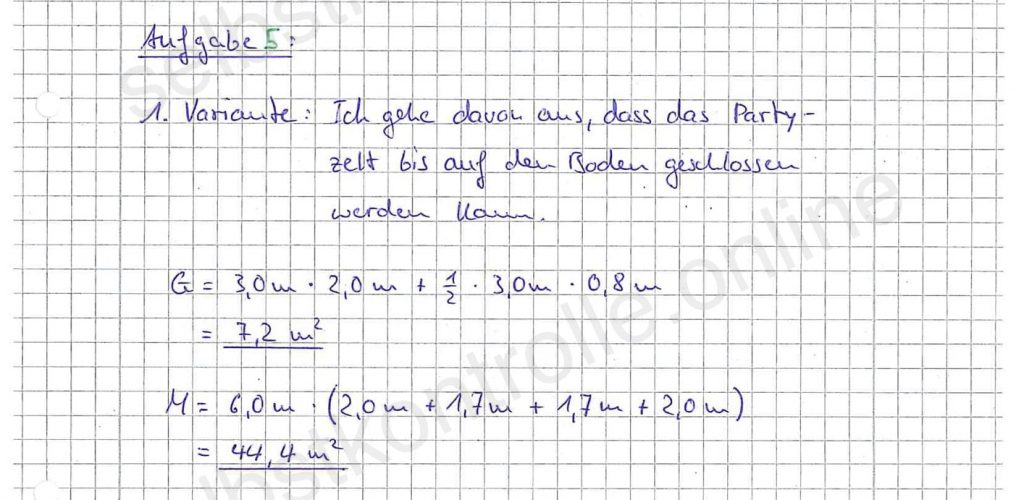 Aufgabe 5:
1. Variante: Ich gehe davon aus, dass das Party-
zelt bis auf den Boden geschlossen
werden kann.
G = 3,0m · 2,0m + 1/2 · 3,0m · 0,8m
= 7,2 m²
M = 6,0m · (2,0m + 1,7m + 1,7m + 2,0m)
= 44,4 m²
selbstkontrolle.online